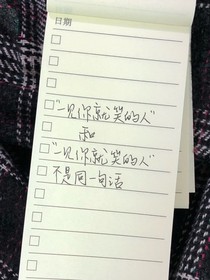 日期
“一见你就笑的人”
和
“一见你就笑的人”
不是同一句话